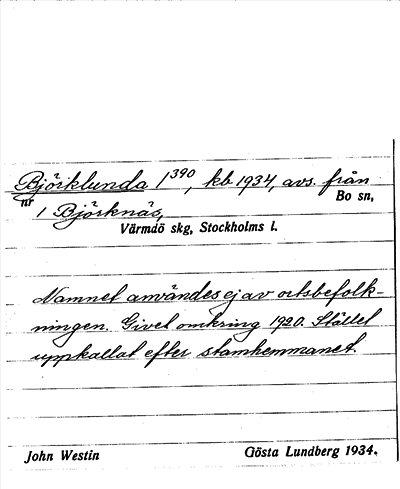 Björklunda 1³⁹⁰, kb 1934, avs. från
nr 1 Björknäs, Bo sn,
Värmdö skg, Stockholms l.
Namnet användes ej av ortsbefolk-
ningen. Givet omkring 1920. Stället
uppkallat efter stamhemmanet.
John Westin Gösta Lundberg 1934.